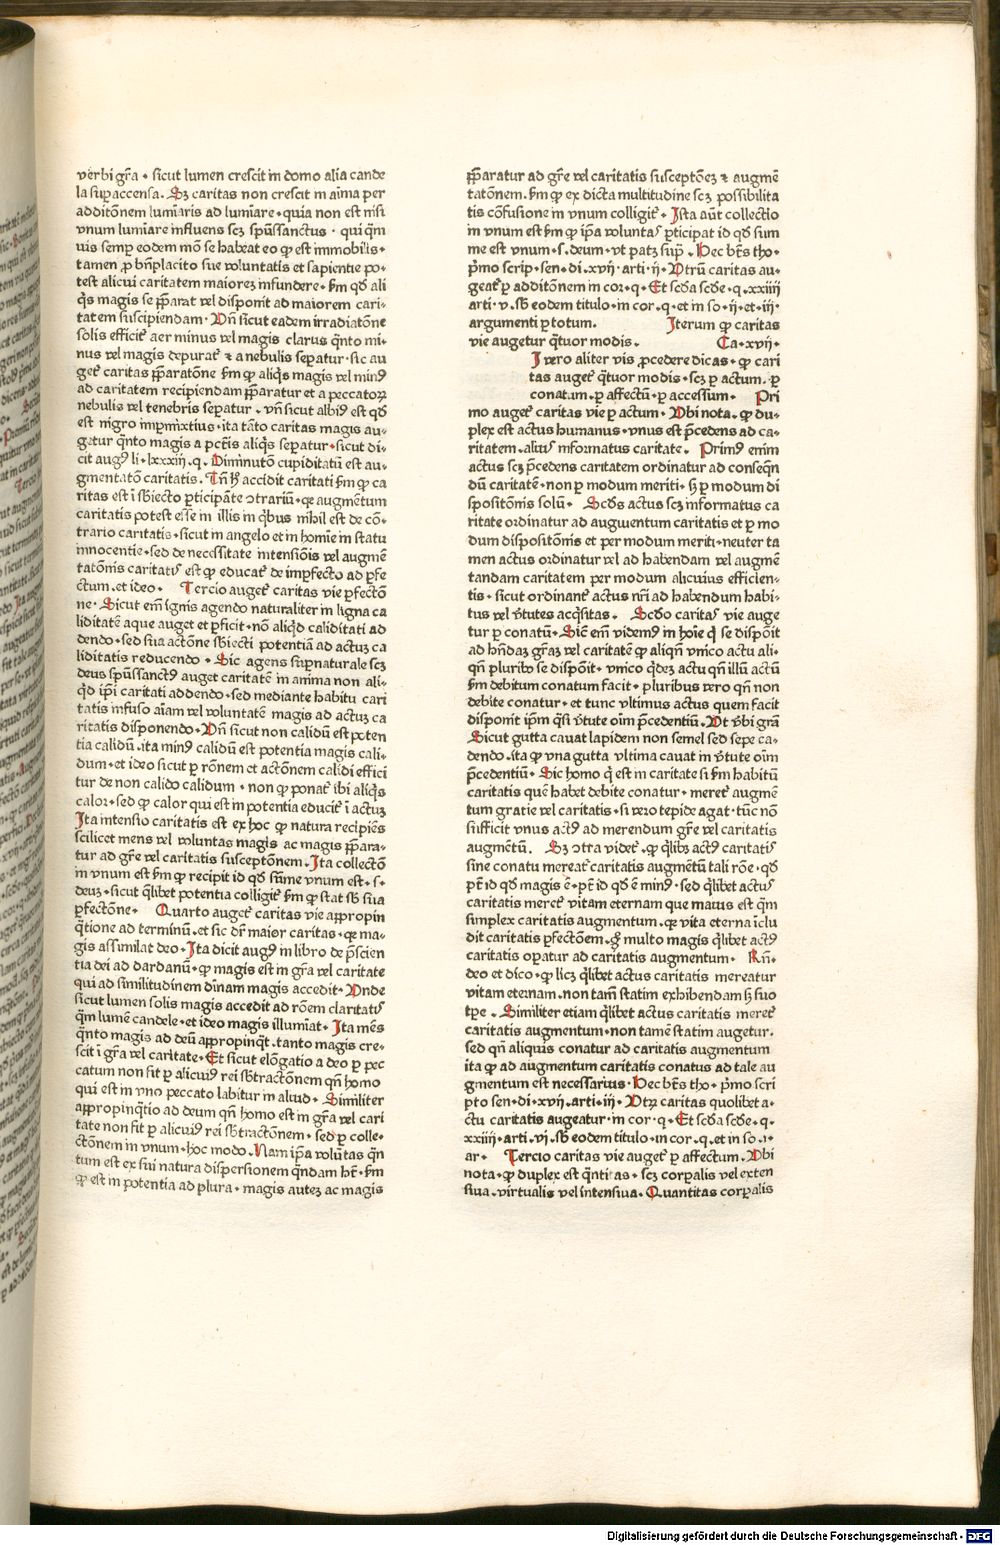 verbi gr̃a · sicut lumen crescit in domo alia cande
la sup̱accensa. Sꝫ caritas non crescit in aĩma per
additõnem lumĩaris ad lumĩare · quia non est nisi
vnum lumĩare influens scꝫ spũssanctus · qui qm̃
uis semp̱ eodem mõ se habeat eo ꝙ est immobilis ·
tamen ꝓ bñplacito sue voluntatis et sapientie po-
test alicui caritatem maiorez infundere · f̃m ꝙ ali
q̃s magis se p̱parat vel disponit ad maiorem cari-
tatem suscipiendam · Vñ sicut eadem irradiatõne
solis efficit̃ aer minus vel magis clarus q̃nto mi-
nus vel magis depurat̃ ⁊ a nebulis sep̱atur · sic au
get̃ caritas p̱paratõne f̃m ꝙ aliq̃s magis vel minꝰ
ad caritatem recipiendam p̱paratur et a peccatoꝝ
nebulis vel tenebris sep̱atur · vñ sicut albiꝰ est qđ
est nigro imp̱mixtius · ita tãto caritas magis au-
getur q̃nto magis a pctĩs aliq̃s sep̱atur · sicut di-
cit augꝰ li · lxxxiij · q · Diminutõ cupiditatũ est au-
gmentatõ caritatis. Tñ ħ accidit caritati f̃m ꝙ ca
ritas est ĩ sb̃iecto p̱ticipãte ↄtrariũ · qꝛ augmẽtum
caritatis potest esse in illis in q̃bus nihil est de cõ-
trario caritatis · sicut in angelo et in homĩe in statu
innocentie · sed de necessitate intensiõis vel augmẽ
tatõnis caritatis est ꝙ educat̃ de imp̱fecto ad p̱fe
ctum. et ideo · Tercio auget̃ caritas vie p̱fectõ
ne · Sicut em̃ ignis agendo naturaliter in ligna ca
liditatẽ aque auget et p̱ficit · nõ aliqđ caliditati ad
dendo · sed sua actõne sb̃iecti potentiã ad actuꝫ ca
liditatis reducendo · Sic agens sup̱naturale scꝫ
deus spũssanctꝰ auget caritatẽ in anima non ali-
qđ ip̃i caritati addendo · sed mediante habitu cari
tatis infuso aĩam vel voluntatẽ magis ad actuꝫ ca
ritatis disponendo · Vñ sicut non calidũ est poten
tia calidũ · ita minꝰ calidũ est potentia magis cali-
dum · et ideo sicut p̱ rõnem et actõnem calidi effici
tur de non calido calidum · non ꝙ ponat̃ ibi aliq̃s
calor · sed ꝙ calor qui est in potentia educit̃ ĩ actuꝫ
Ita intensio caritatis est ex hoc ꝙ natura recipiẽs
scilicet mens vel voluntas magis ac magis p̱para-
tur ad gr̃e vel caritatis susceptõnem. Ita collectõ
in vnum est f̃m ꝙ recipit id qđ sũme vnum est · s ·
deuꝫ · sicut q̃libet potentia colligit̃ f̃m ꝙ stat sb̃ sua
p̱fectõne · Quarto auget̃ caritas vie appropin
q̃tione ad terminũ. et sic dr̃ maior caritas · qꝛ ma-
gis assimilat deo · Ita dicit augꝰ in libro de p̃scien
tia dei ad dardanũ · ꝙ magis est in gr̃a vel caritate
qui ad similitudinem diuinam magis accedit · Vnde
sicut lumen solis magis accedit ad rõem claritatis
q̃m lumẽ candele · et ideo magis illumĩat · Ita mẽs
q̃nto magis ad deũ appropinq̃t. tanto magis cre-
scit ĩ gr̃a vel caritate · Et sicut elõgatio a deo p̱ pec
catum non fit p̱ alicuiꝰ rei sb̃tractõnem qñ homo
qui est in vno peccato labitur in aliud · Similiter
appropinq̃tio ad deum qñ homo est in gr̃a vel cari
tate non fit p̱ alicuiꝰ rei sb̃tractõnem · sed p̱ colle-
ctõnem in vnum · hoc modo. Nam ip̃a volũtas q̃n
tum est ex sui natura dispersionem q̃ndam hẽt · f̃m
ꝙ est in potentia ad plura · magis auteꝫ ac magis
p̱paratur ad gr̃e vel caritatis susceptõeꝫ ⁊ augmẽ
tatõnem. f̃m ꝙ ex dicta multitudine scꝫ possibilita
tis cõfusione in vnum colligit̃ · Ista aũt collectio
in vnum est f̃m ꝙ ip̃a voluntas p̱ticipat id qđ sum
me est vnum · s. deum · vt patꝫ sup̱ · Hec btũs tho ·
p̃mo scrip · sen · di · xvij · arti · ij · Vtrũ caritas au-
geat̃ p̱ additõnem in cor · q · Et scđa scđe · q · xxiiij
arti · v. sb̃ eodem titulo · in cor. q · et in so · ij · et · iij ·
argumenti p̱ totum. Iterum ꝙ caritas
vie augetur q̃tuor modis · Ca · xvij ·
I vero aliter vis ꝓcedere dicas · ꝙ cari
tas auget̃ q̃tuor modis · scꝫ p̱ actum. p̱
conatum · p̱ affectũ · p̱ accessum · Pri
mo auget̃ caritas vie p̱ actum · Vbi nota. ꝙ du-
plex est actus humanus · vnus est p̃cedens ad ca-
ritatem. alius informatus caritate. Primꝰ enim
actus scꝫ p̃cedens caritatem ordinatur ad conseq̃n
dũ caritatẽ · non p̱ modum meriti · ꝫ p̱ modum di
spositõnis solũ · Scđs actus scꝫ informatus ca
ritate ordinatur ad augmentum caritatis et p̱ mo
dum dispositõnis et per modum meriti · neuter ta
men actus ordinatur vel ad habendam vel augmẽ
tandam caritatem per modum alicuius efficien-
tis · sicut ordinant̃ actus nr̃i ad habendum habi-
tus vel v̓tutes acq̃sitas. Scđo caritas vie auge
tur p̱ conatũ · Sic em̃ videmꝰ in hoĩe q̃ se dispõit
ad hñdaꝫ gr̃aꝫ vel caritatẽ ꝙ aliqñ vnico actu ali-
qñ plurib̃ se dispõit · vnico q̃deꝫ actu qñ illũ actũ
f̃m debitum conatum facit · pluribus vero qñ non
debite conatur · et tunc vltimus actus quem facit
disponit ip̃m q̃si v̓tute oĩm p̃cedentiũ · Vt v̓bi gr̃a
Sicut gutta cauat lapidem non semel sed sepe ca-
dendo · ita ꝙ vna gutta vltima cauat in v̓tute oĩm
p̃cedentiũ · Sic homo q̃ est in caritate si f̃m habitũ
caritatis quẽ habet debite conatur · meret̃ augmẽ
tum gratie vel caritatis · si vero tepide agat · tũc nõ
sufficit vnus actꝰ ad merendum gr̃e vel caritatis
augmẽtũ. Sꝫ ↄtra videt̃ · ꝙ q̃libꝫ actꝰ caritatis
sine conatu mereat̃ caritatis augmẽtũ tali rõe · qđ
pt̃ id qđ magis ẽ · pt̃ id qđ ẽ minꝰ · sed q̃libet actus
caritatis meret̃ vitam eternam que maius est q̃m
simplex caritatis augmentum. qꝛ vita eterna ĩclu
dit caritatis p̱fectõem. gͦ multo magis q̃libet actꝰ
caritatis op̱atur ad caritatis augmentum · Rñ ·
deo et dico · ꝙ licꝫ q̃libet actus caritatis mereatur
vitam eternam. non tam̃ statim exhibendam ꝫ suo
tp̃e. Similiter etiam q̃libet actus caritatis meret̃
caritatis augmentum · non tamẽ statim augetur.
sed qñ aliquis conatur ad caritatis augmentum
ita ꝙ ad augmentum caritatis conatus ad tale au
gmentum est necessarius · Hec btẽs tho · p̃mo scri
pto sen · di · xvij. arti · iij · Vtꝝ caritas quolibet a-
ctu caritatis augeatur · in cor · q · Et scđa scđe · q ·
xxiiij · arti. vj. sb̃ eodem titulo · in cor. q. et in so · i ·
ar · Tercio caritas vie auget̃ p̱ affectum. Vbi
nota · ꝙ duplex est q̃ntitas · scꝫ corp̱alis vel exten
siua. virtualis vel intensiua. Quantitas corp̱alis
Digitalisierung gefördert durch die Deutsche Forschungsgemeinschaft - DFG